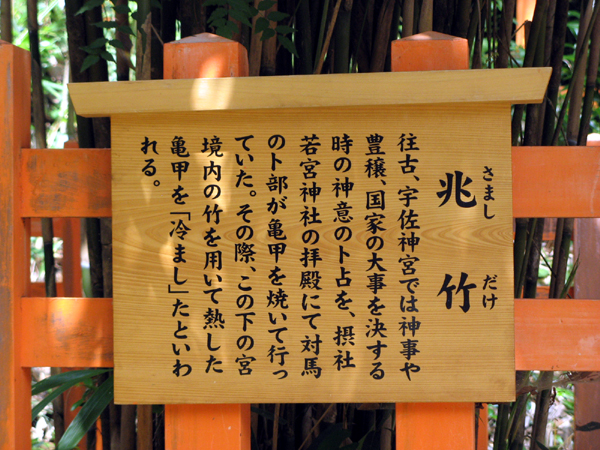 兆竹
さまし だけ
往古、宇佐神宮では神事や
豊穣、国家の大事を決する
時の神意の卜占を、摂社
若宮神社の拝殿にて対馬
の卜部が亀甲を焼いて行っ
ていた。その際、この下の宮
境内の竹を用いて熱した
亀甲を「冷まし」たといわ
れる。